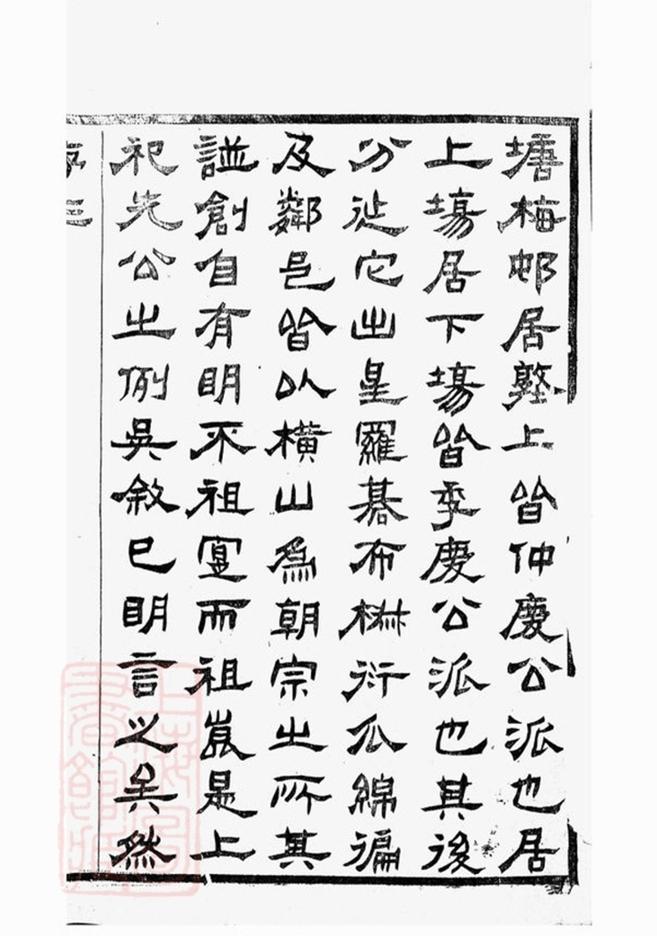 塘梅邨居上皆仲慶公派也居
上塲居下塲皆季慶公派也其後
分徙它出星羅碁布椒衍瓜綿徧
及鄰邑皆以橫山爲朝宗之所其
譜創自有明不祖寔而祖是上
祀先公之例吳敘已明言之矣然
序三